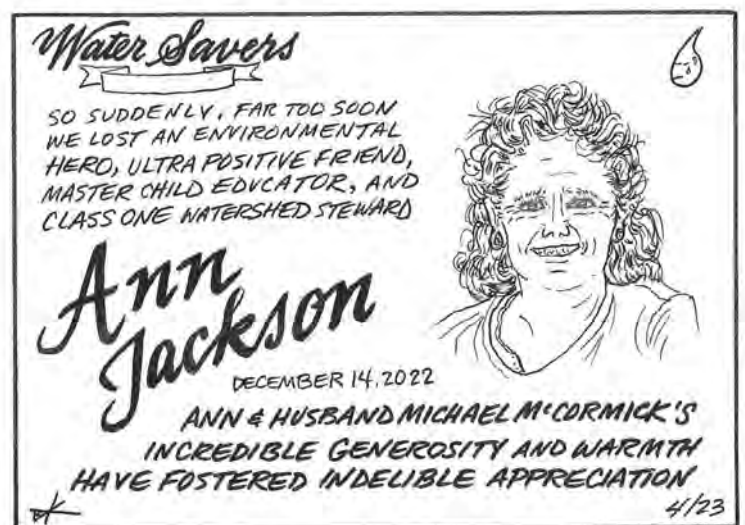 Water Savers
SO SUDDENLY, FAR TOO SOON
WE LOST AN ENVIRONMENTAL
HERO, ULTRA POSITIVE FRIEND,
MASTER CHILD EDUCATOR, AND
CLASS ONE WATERSHED STEWARD
Ann
Jackson
DECEMBER 14, 2022
ANN & HUSBAND MICHAEL McCORMICK'S
INCREDIBLE GENEROSITY AND WARMTH
HAVE FOSTERED INDELIBLE APPRECIATION
4/23